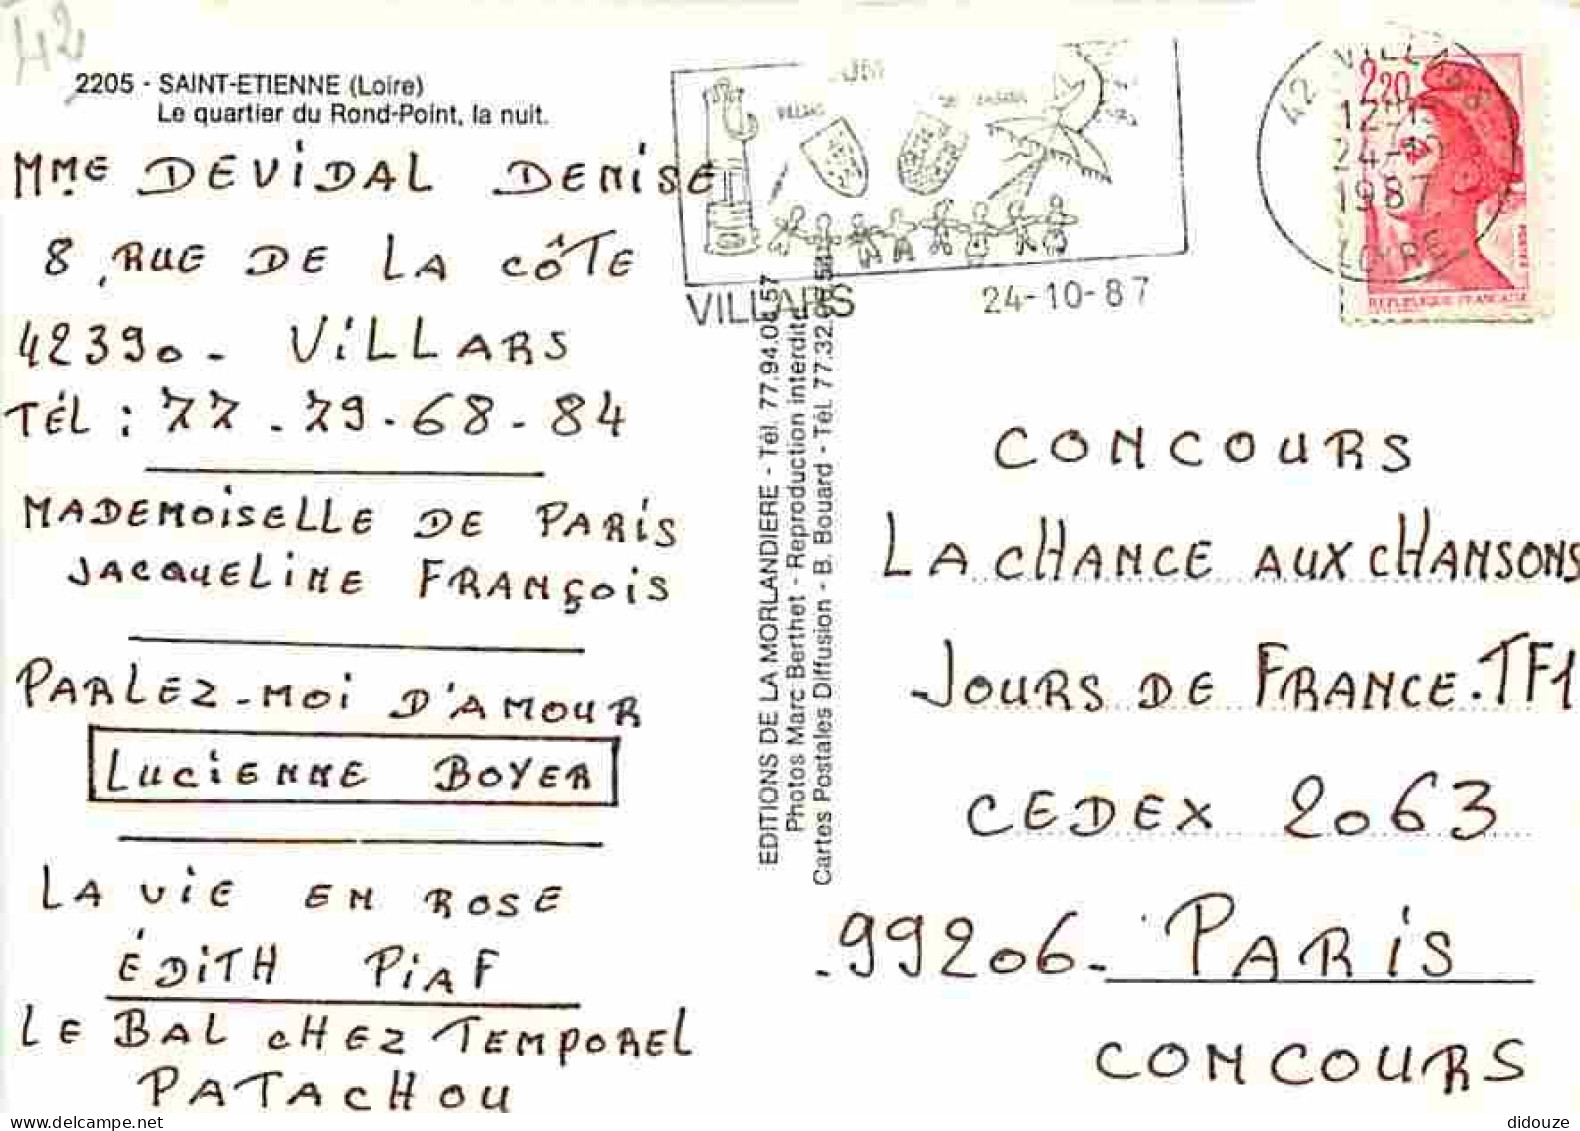 42
2205 - SAINT-ETIENNE (Loire)
Le quartier du Rond-Point, la nuit.
MME DEVIDAL DENISE
8, RUE DE LA CÔTE
42390. VILLARS
TÉL : 77.79.68.84
MADEMOISELLE DE PARIS
JACQUELINE FRANÇOIS
PARLEZ-MOI D'AMOUR
LUCIENNE BOYER
LA VIE EN ROSE
ÉDITH PIAF
LE BAL CHEZ TEMPOREL
PATACHOU
EDITIONS DE LA MORLANDIERE - Tél. 77.94.04.57
Photos Marc Berthet - Reproduction interdite
Cartes Postales Diffusion - B. Bouard - Tél. 77.32.
VILLARS
VILLARS
24-10-87
42 VILLARS
24-10
1987
LOIRE
2,20
POSTES
REPUBLIQUE FRANÇAISE
CONCOURS
LA CHANCE AUX CHANSONS
JOURS DE FRANCE.TF1
CEDEX 2063
.99206. PARIS
CONCOURS
didouze